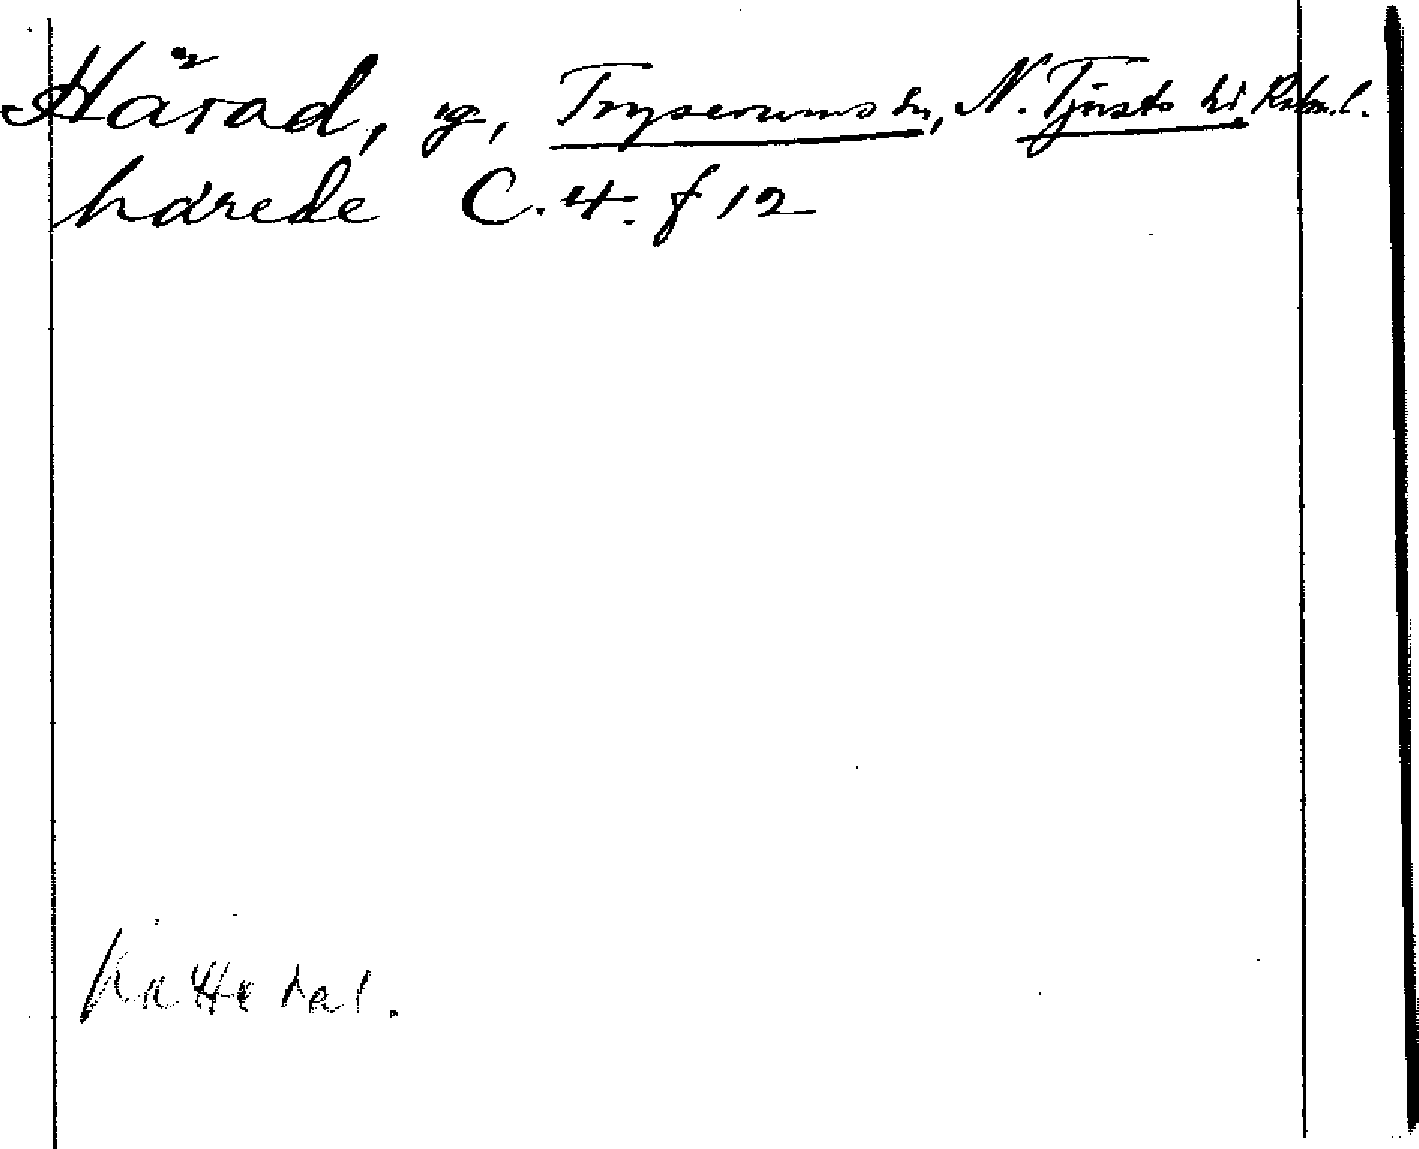 Härad, g, Tryserums sn, N. Tjusts hd. Kalm. l.
härede C. 4. f 12
Kättedal.